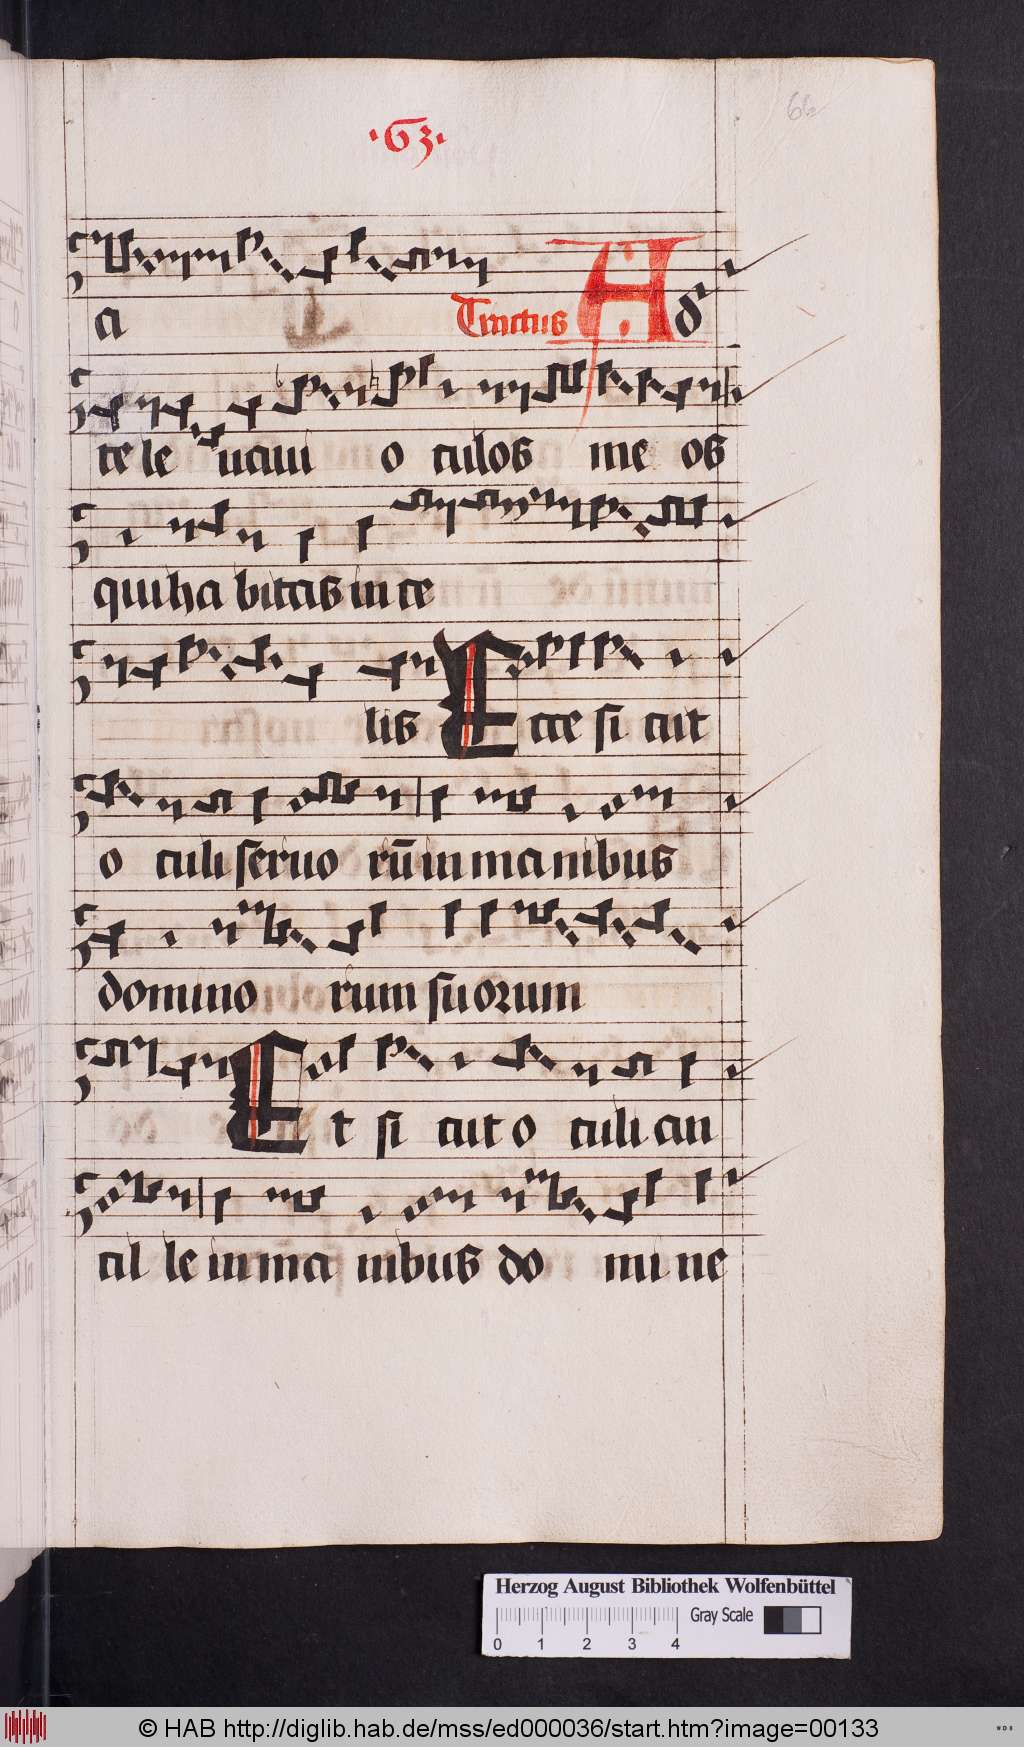 ·63·
66
a Tractus Ad
te le uaui o culos me os
qui ha bitas in ce
lis Ecce si cut
o culi seruo rū in ma nibus
domino rum suorum
Et si cut o culi an
cil le in ma nibus do mi ne
Herzog August Bibliothek Wolfenbüttel
Gray Scale
0 1 2 3 4
© HAB http://diglib.hab.de/mss/ed000036/start.htm?image=00133